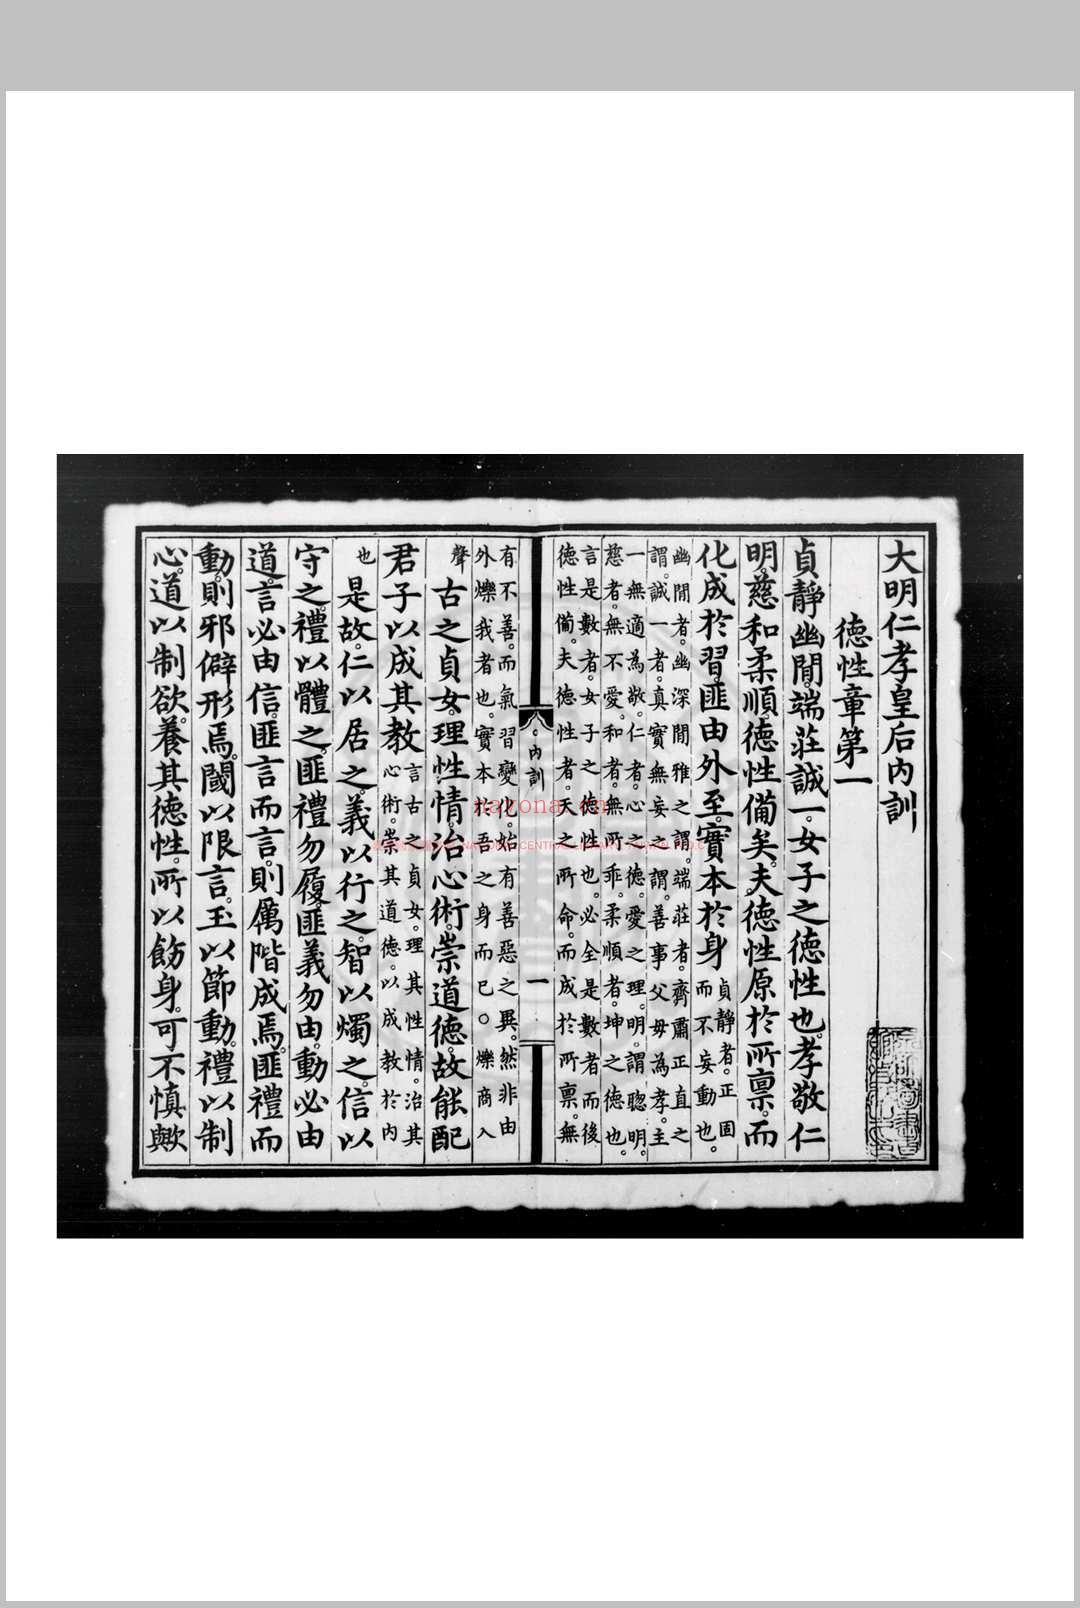 大明仁孝皇后内訓
德性章第一
貞靜幽閒。端莊誠一。女子之德性也。孝敬仁
明。慈和柔順。德性備矣。夫德性原於所禀。而
化成於習。匪由外至。實本於身
貞靜者。正固
而不妄動也。
幽閒者。幽深閒雅之謂。端莊者。齊肅正直之
謂。誠一者。真實無妄之謂。善事父母為孝。主
一無適為敬。仁者。心之德。愛之理。明。謂聰明。
慈者。無不愛。和者。無所乖。柔順者。坤之德也。
言是數者。女子之德性也。必全是數者而後
德性備。夫德性者。天之所命。而成於所禀。無
内訓
一
有不善。而氣習變化。始有善惡之異。然非由
外爍我者也。實本於吾之身而已。○爍商入
聲
古之貞女。理性情。治心術。崇道德。故能配
君子以成其教
言古之貞女。理其性情。治其
心術。崇其道德。以成教於内
也
是故仁以居之。義以行之。智以燭之。信以
守之。禮以體之。匪禮勿履。匪義勿由。動必由
道。言必由信。匪言而言。則厲階成焉。匪禮而
動。則邪僻形焉。閾以限言。玉以節動。禮以制
心。道以制欲。養其德性。所以飭身。可不慎歟
nayona.cn